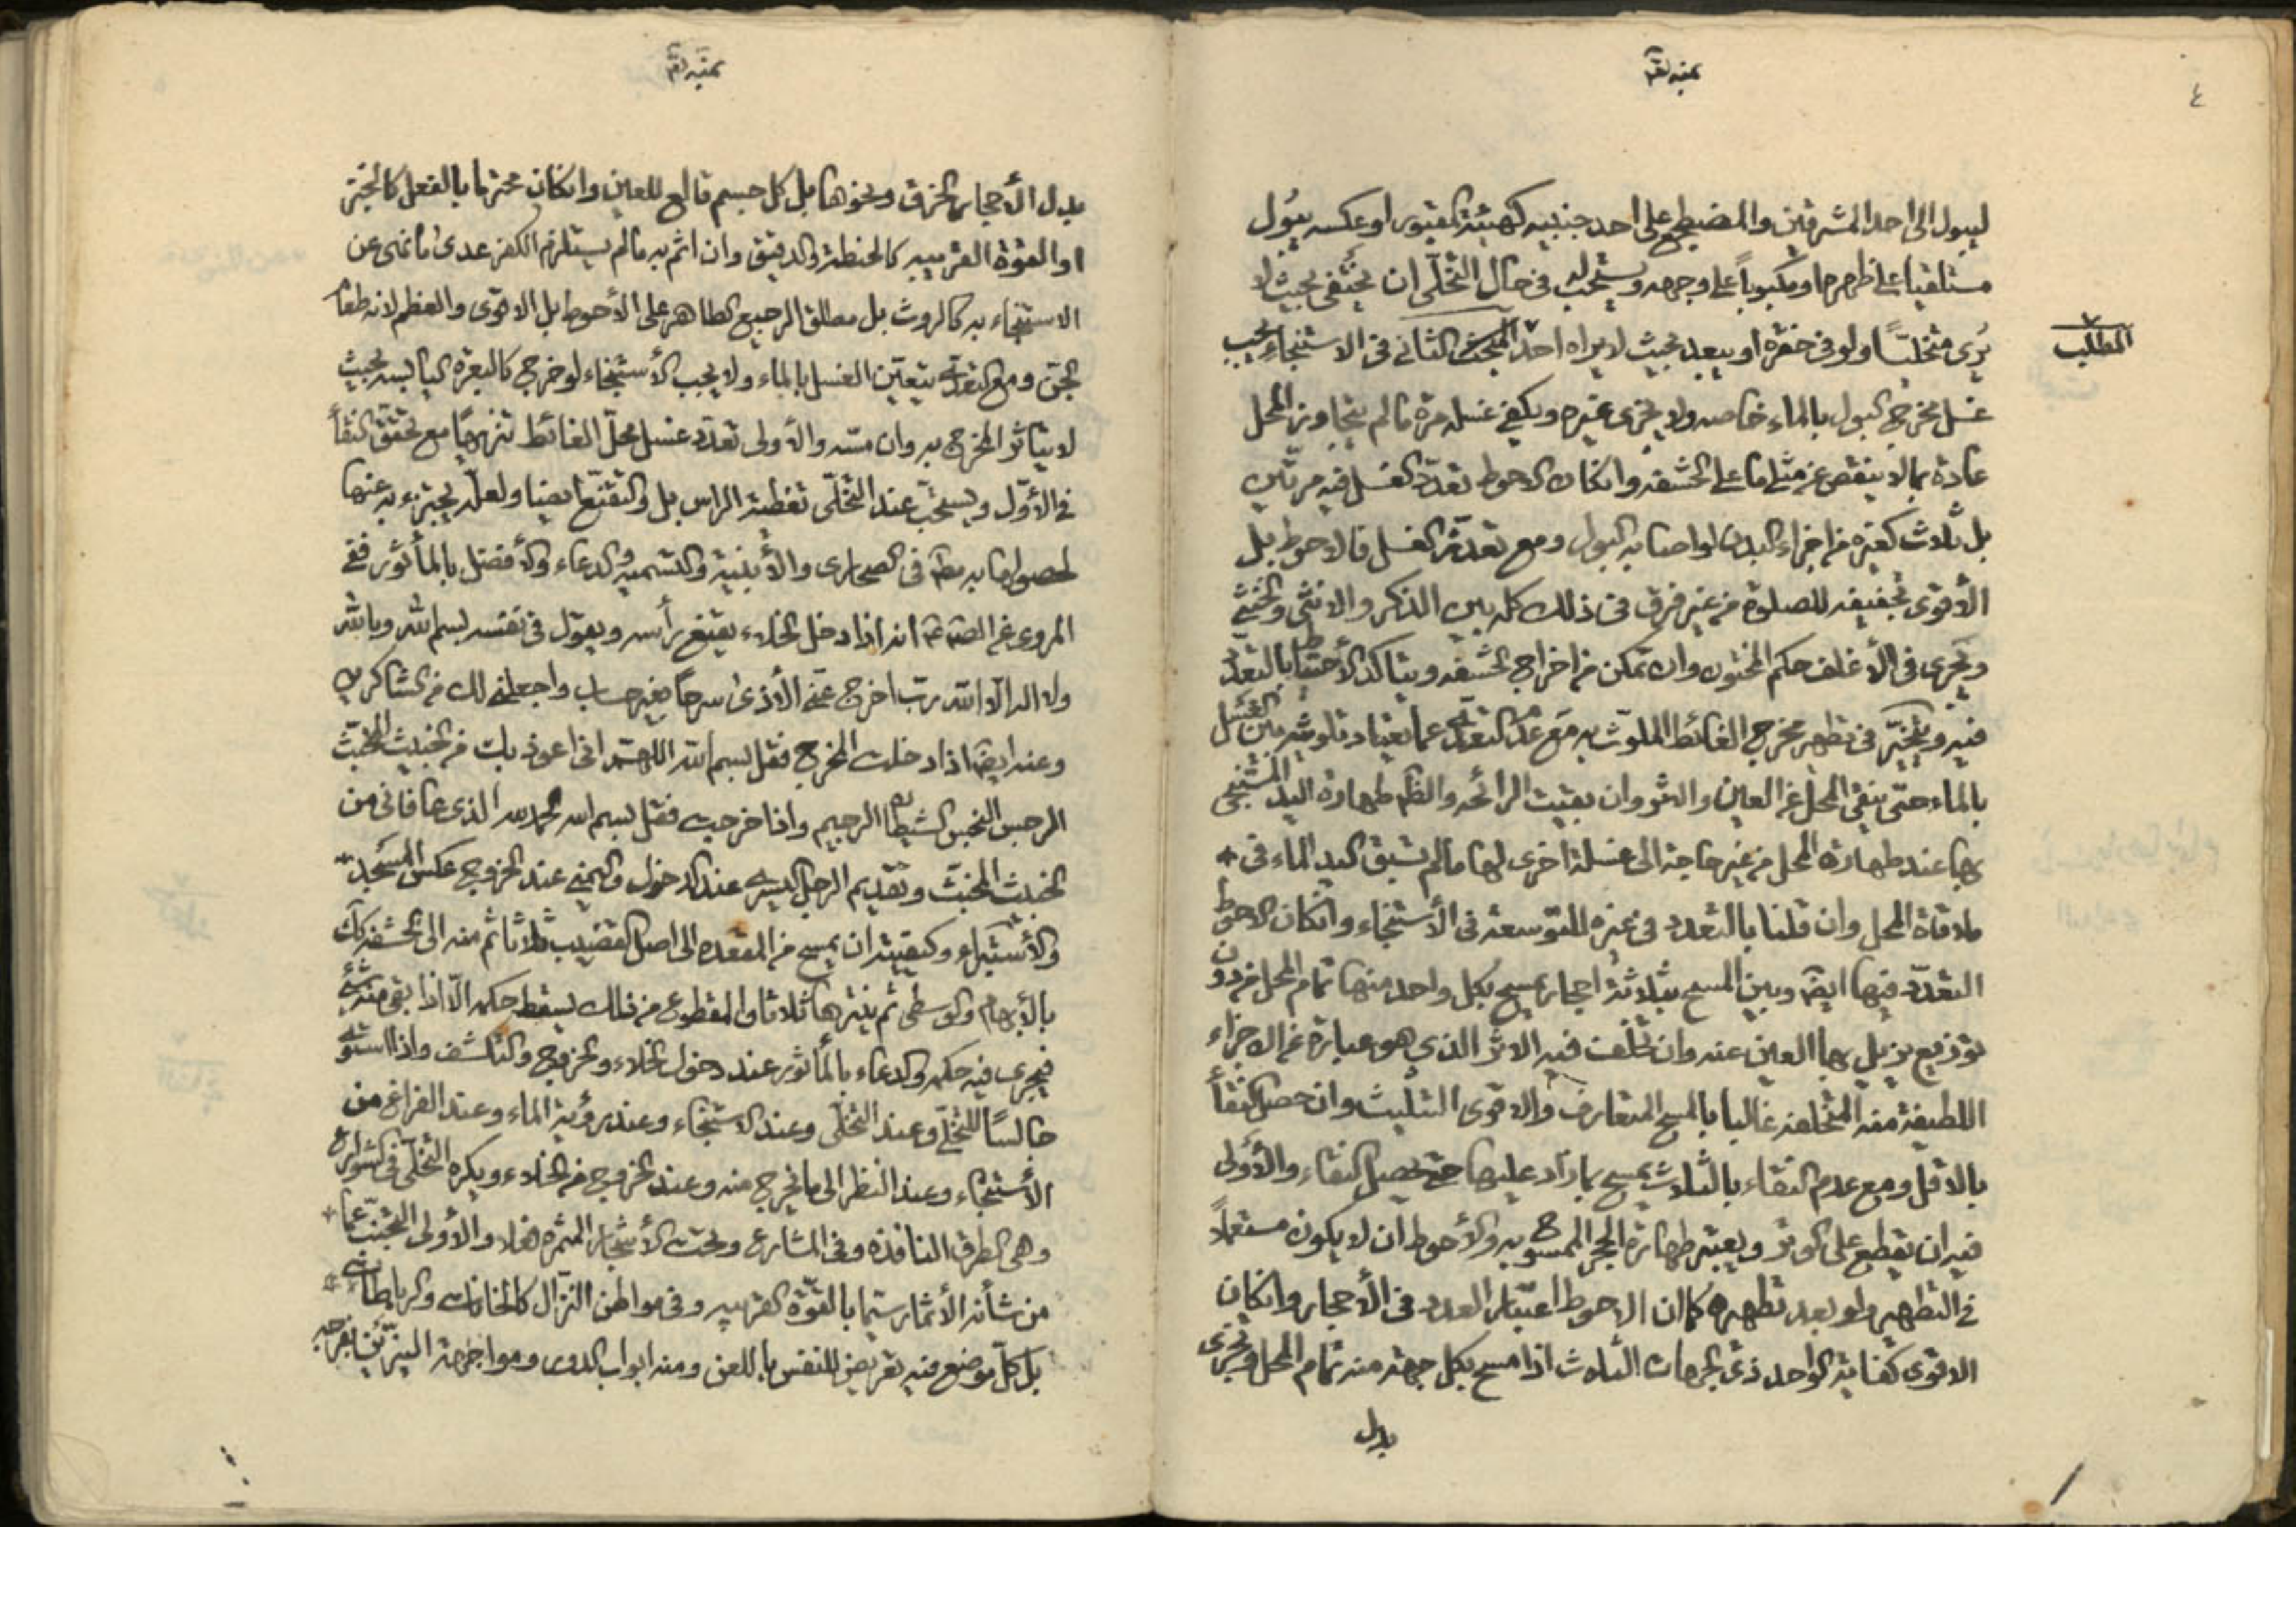 ٤
ليبول الى احد المشرقين والمضطجع على احد جنبيه كهيئة المقبور او عكسه يبول
مستلقيا على ظهره او مكبوباً على وجهه ويستحب له في حال التخلّى ان يختفى بحيث لا
يُرى متخليّاً ولو في حفرة او يبعد بحيث لا يراه احد المبحث الثانى فى الاستنجاء يجب
المطلب
غسل مخرج البول بالماء خاصه ولا يجزى غيره ويكفى غسله مرة ما لم يتجاوز المحل
عادة بما لا ينقص عن مثلى ما على الحشفه وانكان الاحوط تعدّد الغسل فيه مرتين
بل ثلاث كغيره من اجزاء البدن لو اصابه البول ومع تعذّر الغسل فالاحوط بل
الأقوى تجفيفه للصلوة من غير فرق فى ذلك كله بين الذكر والانثى والخنثى
ويجرى فى الأغلف حكم المختون وان تمكن من اخراج الحشفه ويتاكد الأحتياط بالتعدّد
فيه ويتخيّر فى تطهير مخرج الغائط الملوّث به مع عدم التعدّى عما يعتاد تلويثه بين الغسل
بالماء حتى ينقى المحل عن العين والاثر وان بقيت الرائحه والظّ طهارة اليد المستنجى
بها عند طهارة المحل من غير حاجة الى غسلة اخرى لها ما لم تسبق اليد الماء فى
ملاقاة المحل وان قلنا بالتعدد فى غيره للتوسعة فى الأستنجاء وانكان الاحوط
التعدّد فيها ايضً وبين المسح بثلاثة احجار يمسح بكل واحد منها تمام المحل من دون
توزيع يزيل بها العين عنه وان تخلّفت فيه الاثر الذى هو عبارة عن الاجزاء
اللطيفة منه المتخلفه غالبا بالمسح المتعارف والاقوى التثليث وان حصل النقأ
بالاقل ومع عدم النقاء بالثلاث يمسح بما زاد عليها حتى يحصل النقاء والأولى
فيه ان يقطع على الوتر ويعتبر طهارة الحجر الممسوح به والأحوط ان لا يكون مستعملاً
فى التطهير ولو بعد تطهيره كما ان الاحوط اعتبار العدد فى الأحجار وانكان
الاقوى كفاية الواحد ذى الجهات الثلاث اذا مسح بكل جهة منه تمام المحل ويجزى
بدل
بدل الأحجار الخزف ونحوها بل كل جسم قالع للعين وانكان محترما بالفعل كالخبز
او القوة القريبه كالحنطة والدقيق وان اثم به ما لم يستلزم الكفر عدى ما نهى عن
الاستنجاء به كالروث بل مطلق الرجيع الطاهر على الأحوط بل الاقوى والعظم لانه طعام
الجن ومع التعدّى يتعيّن الغسل بالماء ولا يجب الأستنجاء لو خرج كالبعرة اليابسه بحيث
لا يتاثر المخرج به وان مسّه والأولى تعدّد غسل محلّ الغائط تنزيهاً مع تحقق النقأ
فى الأوّل ويستحبّ عند التخلّى تغطية الراس بل والتقنّع ايضا ولعلّه يجتزء به عنها
لحصولها به مطً فى الصحارى والأبنية والتسميه والدعاء والأفضل بالمأثور ففى
المروى عن الصّادق ع انه اذا دخل الخلاء يقنع رأسه ويقول فى نفسه بسم الله وبالله
ولا اله الّا الله رب اخرج عنّى الأذى سرحاً بغير حساب واجعلنى لك من الشاكرين
وعنه ايضً اذا دخلت المخرج فقل بسم الله اللهم انى اعوذ بك من الخبيث المخبّث
الرجس النجس الشيطان الرجيم واذا خرجت فقل بسم الله الحمد لله الذى عافانى من
الخبيث المخبّث وتقديم الرجل اليسرى عند الدخول واليمنى عند الخروج عكس المسجد
والأستبراء وكيفيته ان يمسح من المقعده الى اصل القضيب ثلاثا ثم منه الى الحشفه كك
بالأبهام والوسطى ثم ينترها ثلاثا والمقطوع من ذلك يسقط حكمه الّا اذا بقى منه شئ
فيجرى فيه حكمه والدعاء بالمأثور عند دخول الخلاء والخروج والتكشف واذا استوى
جالساً للتخلّى وعند التخلّى وعند الاستنجاء وعند رؤية الماء وعند الفراغ من
الأستنجاء وعند النظر الى ما يخرج منه وعند الخروج من الخلاء ويكره التخلّى فى الشوارع
وهى الطرق النافذة وفى المشارع وتحت الأشجار المثمرة فعلا والأولى التجنّب عما
من شأنه الأثمار سيّما بالقوّة القريبه وفى مواطن النزّال كالخانات والرباطات
بل كلّ موضع فيه تعريض للنفس باللعن ومنه ابواب الدور ومواجهة النيّرين بفرجه